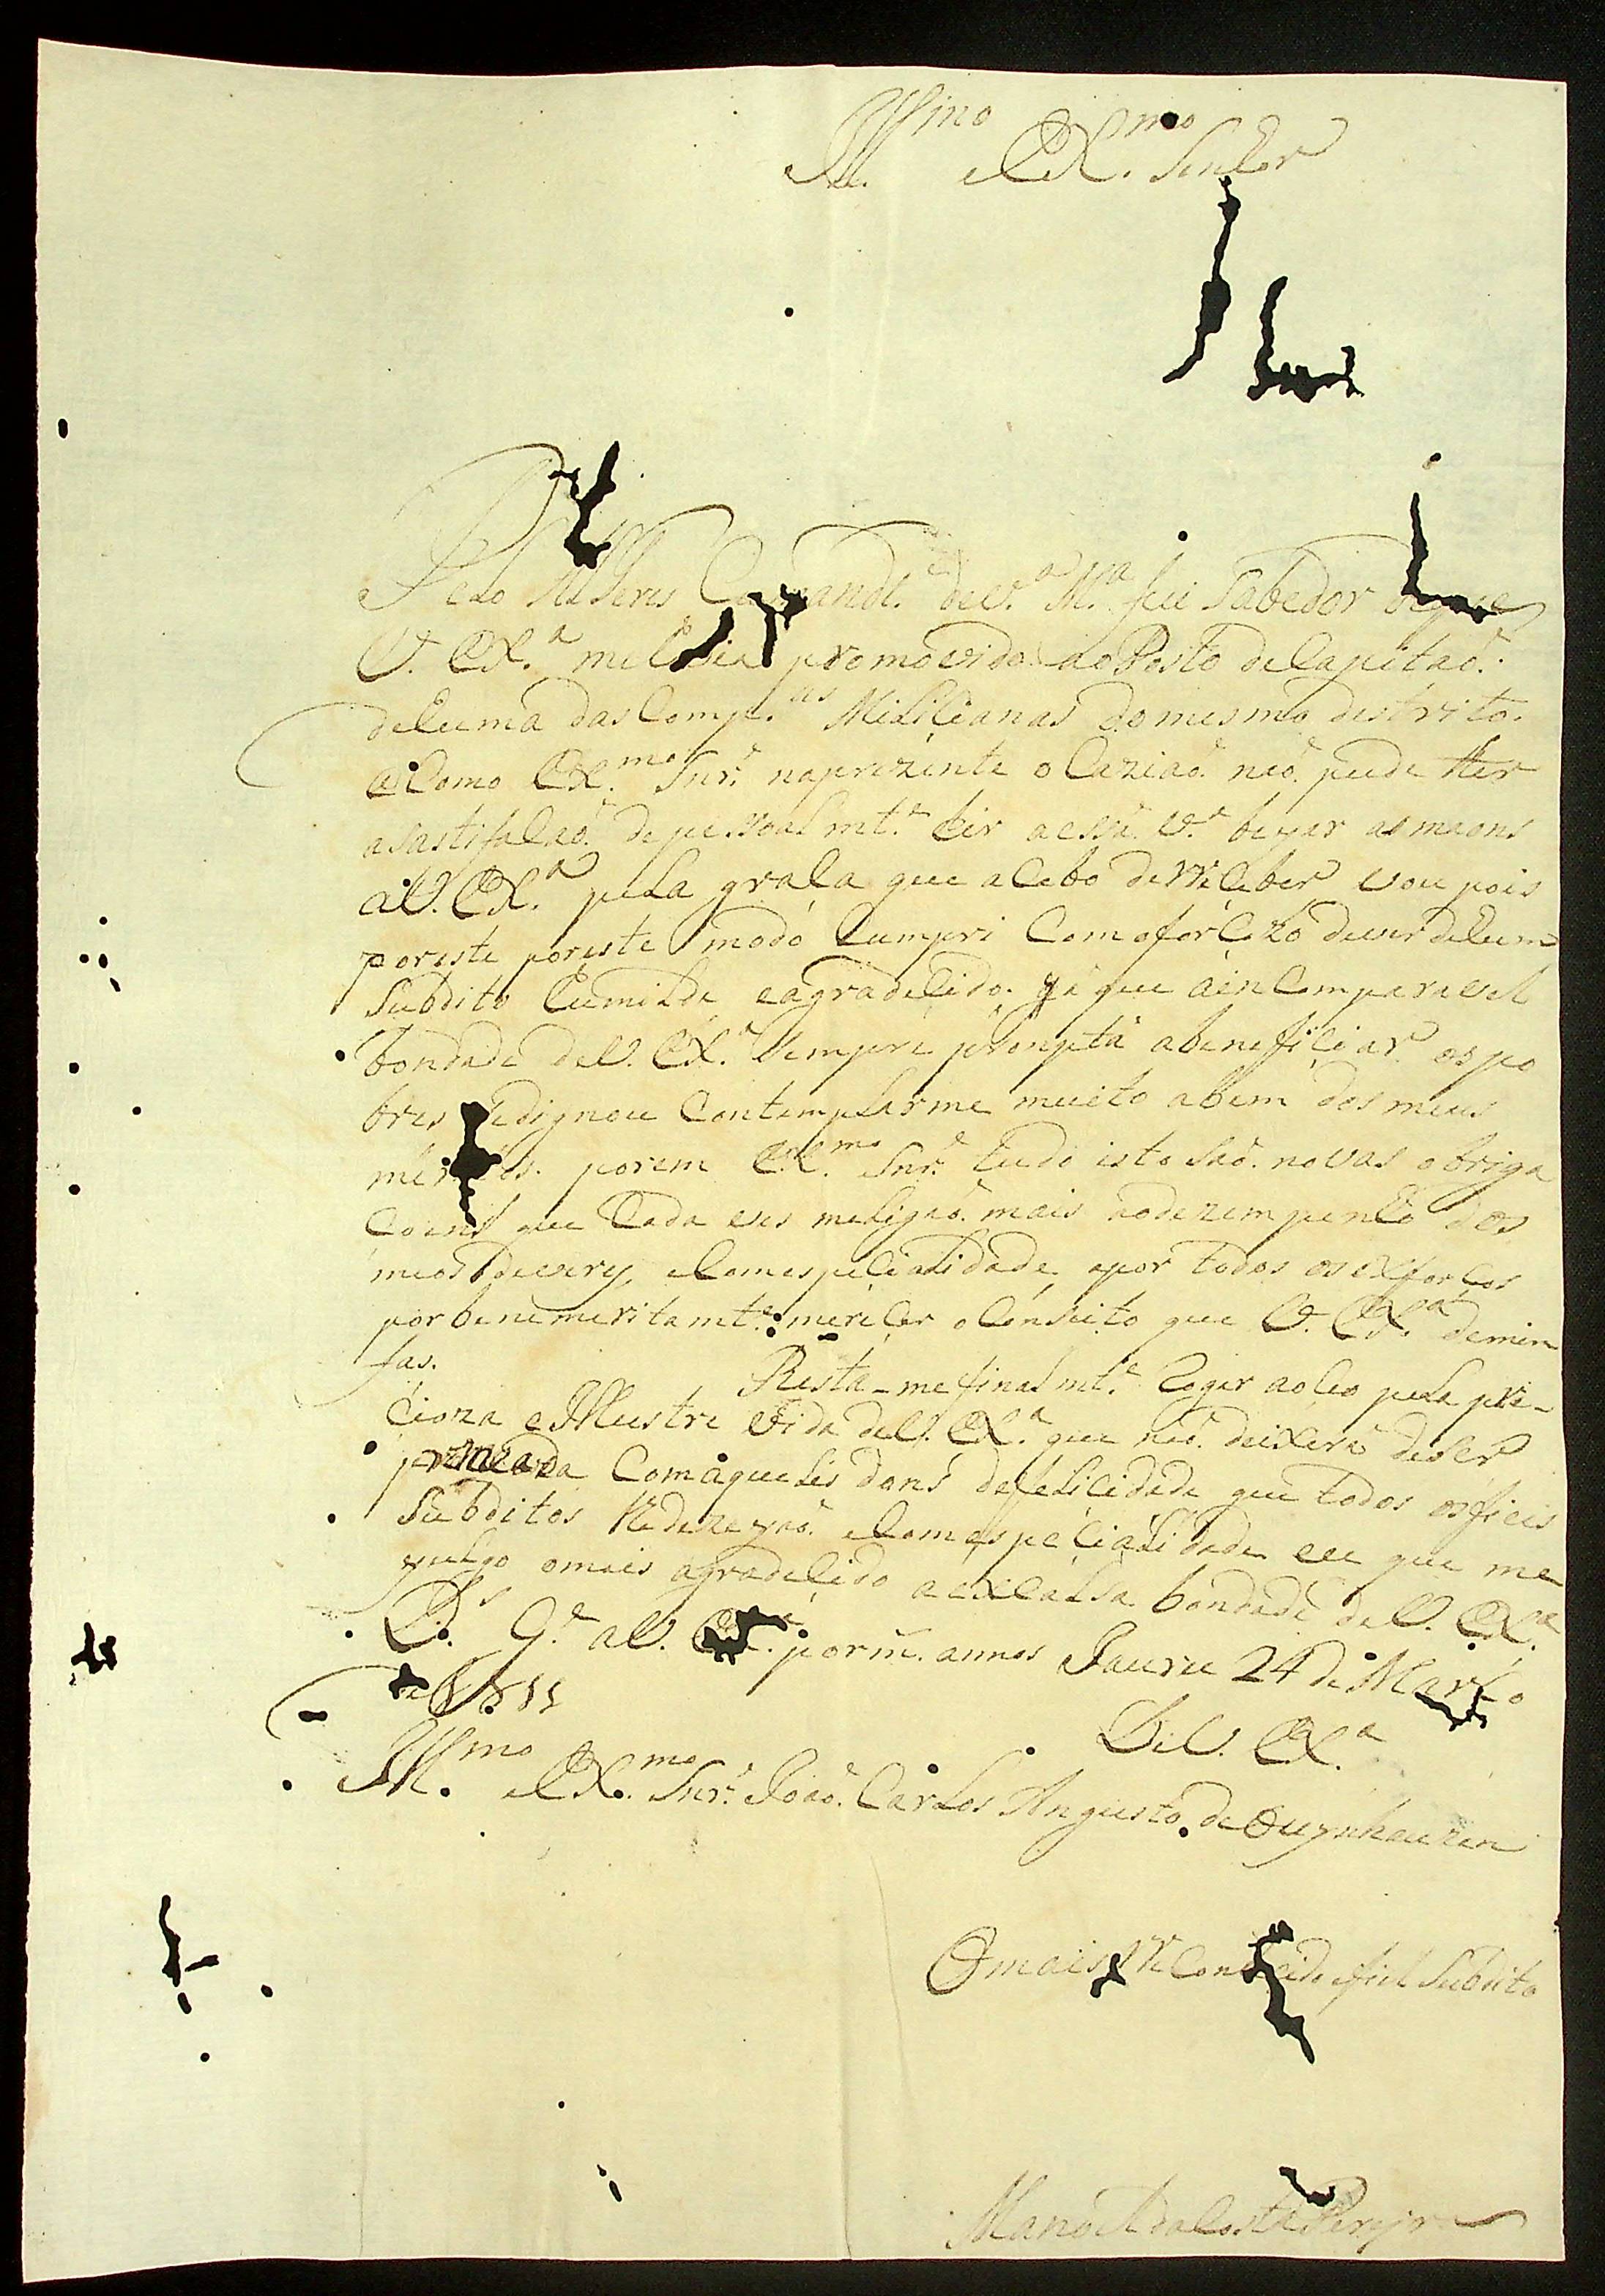 Ill.mo e Ex.mo Senhor
Pelo Alferes Comand.e de V.a M.a fui Sabedor
V. Ex.a me promovido ao Posto de Capitaõ.
de huma das Comp.as Miliçianas do mesmo destrito.
e Como Ex.mo Snr. na prezente o Caziaõ. naõ. pude ter
a sastifaçaõ. de pessoal mt.e hir a essa V.a bejar as maons
a V. Ex.a pela graça que acebo de rreçeber vou pois
por este por este modo Cumpri Com o forçozo dever de hum
Subdito humilde, e agradeçido. já que a inComparavel
bondade de V. Ex.a Sempre prompta a benefiçiar os po
bres dignou Contemplarme muito abem dos meus
porem Ex.mo Snr. tudo isto Saõ. novas obriga
çoens que Cada ves me ligaõ. mais ao dezempenho dos
meos devery, e Com espeçialidade, apor todos os exforços
por benemeritamt.e mereçer o Conseito que V. Ex.a de mim
fas.
Resta-me final mt.e Rogar ao Ceo pela pre-
cioza e Illustre Vida de V. Ex.a que naõ. deixera de Ser
premeada Com aqueles dons de feliçidade que todos os fieis
Subditos lhe dezejaõ. e Com espeçialidade eu que me
julgo o mais agradeçido a exCalsa bondade de V. Ex.a
D.s G.e a V. Ex.a por m. annos Jauru 24 de Março
de 1811
De V. Ex.a
Ill.mo e Ex.mo Snr. Joaõ. Carlos Augusto de Ouynhauzen
O mais rreConheçido e fiel Subdito
Manoel da Costa Pereyra